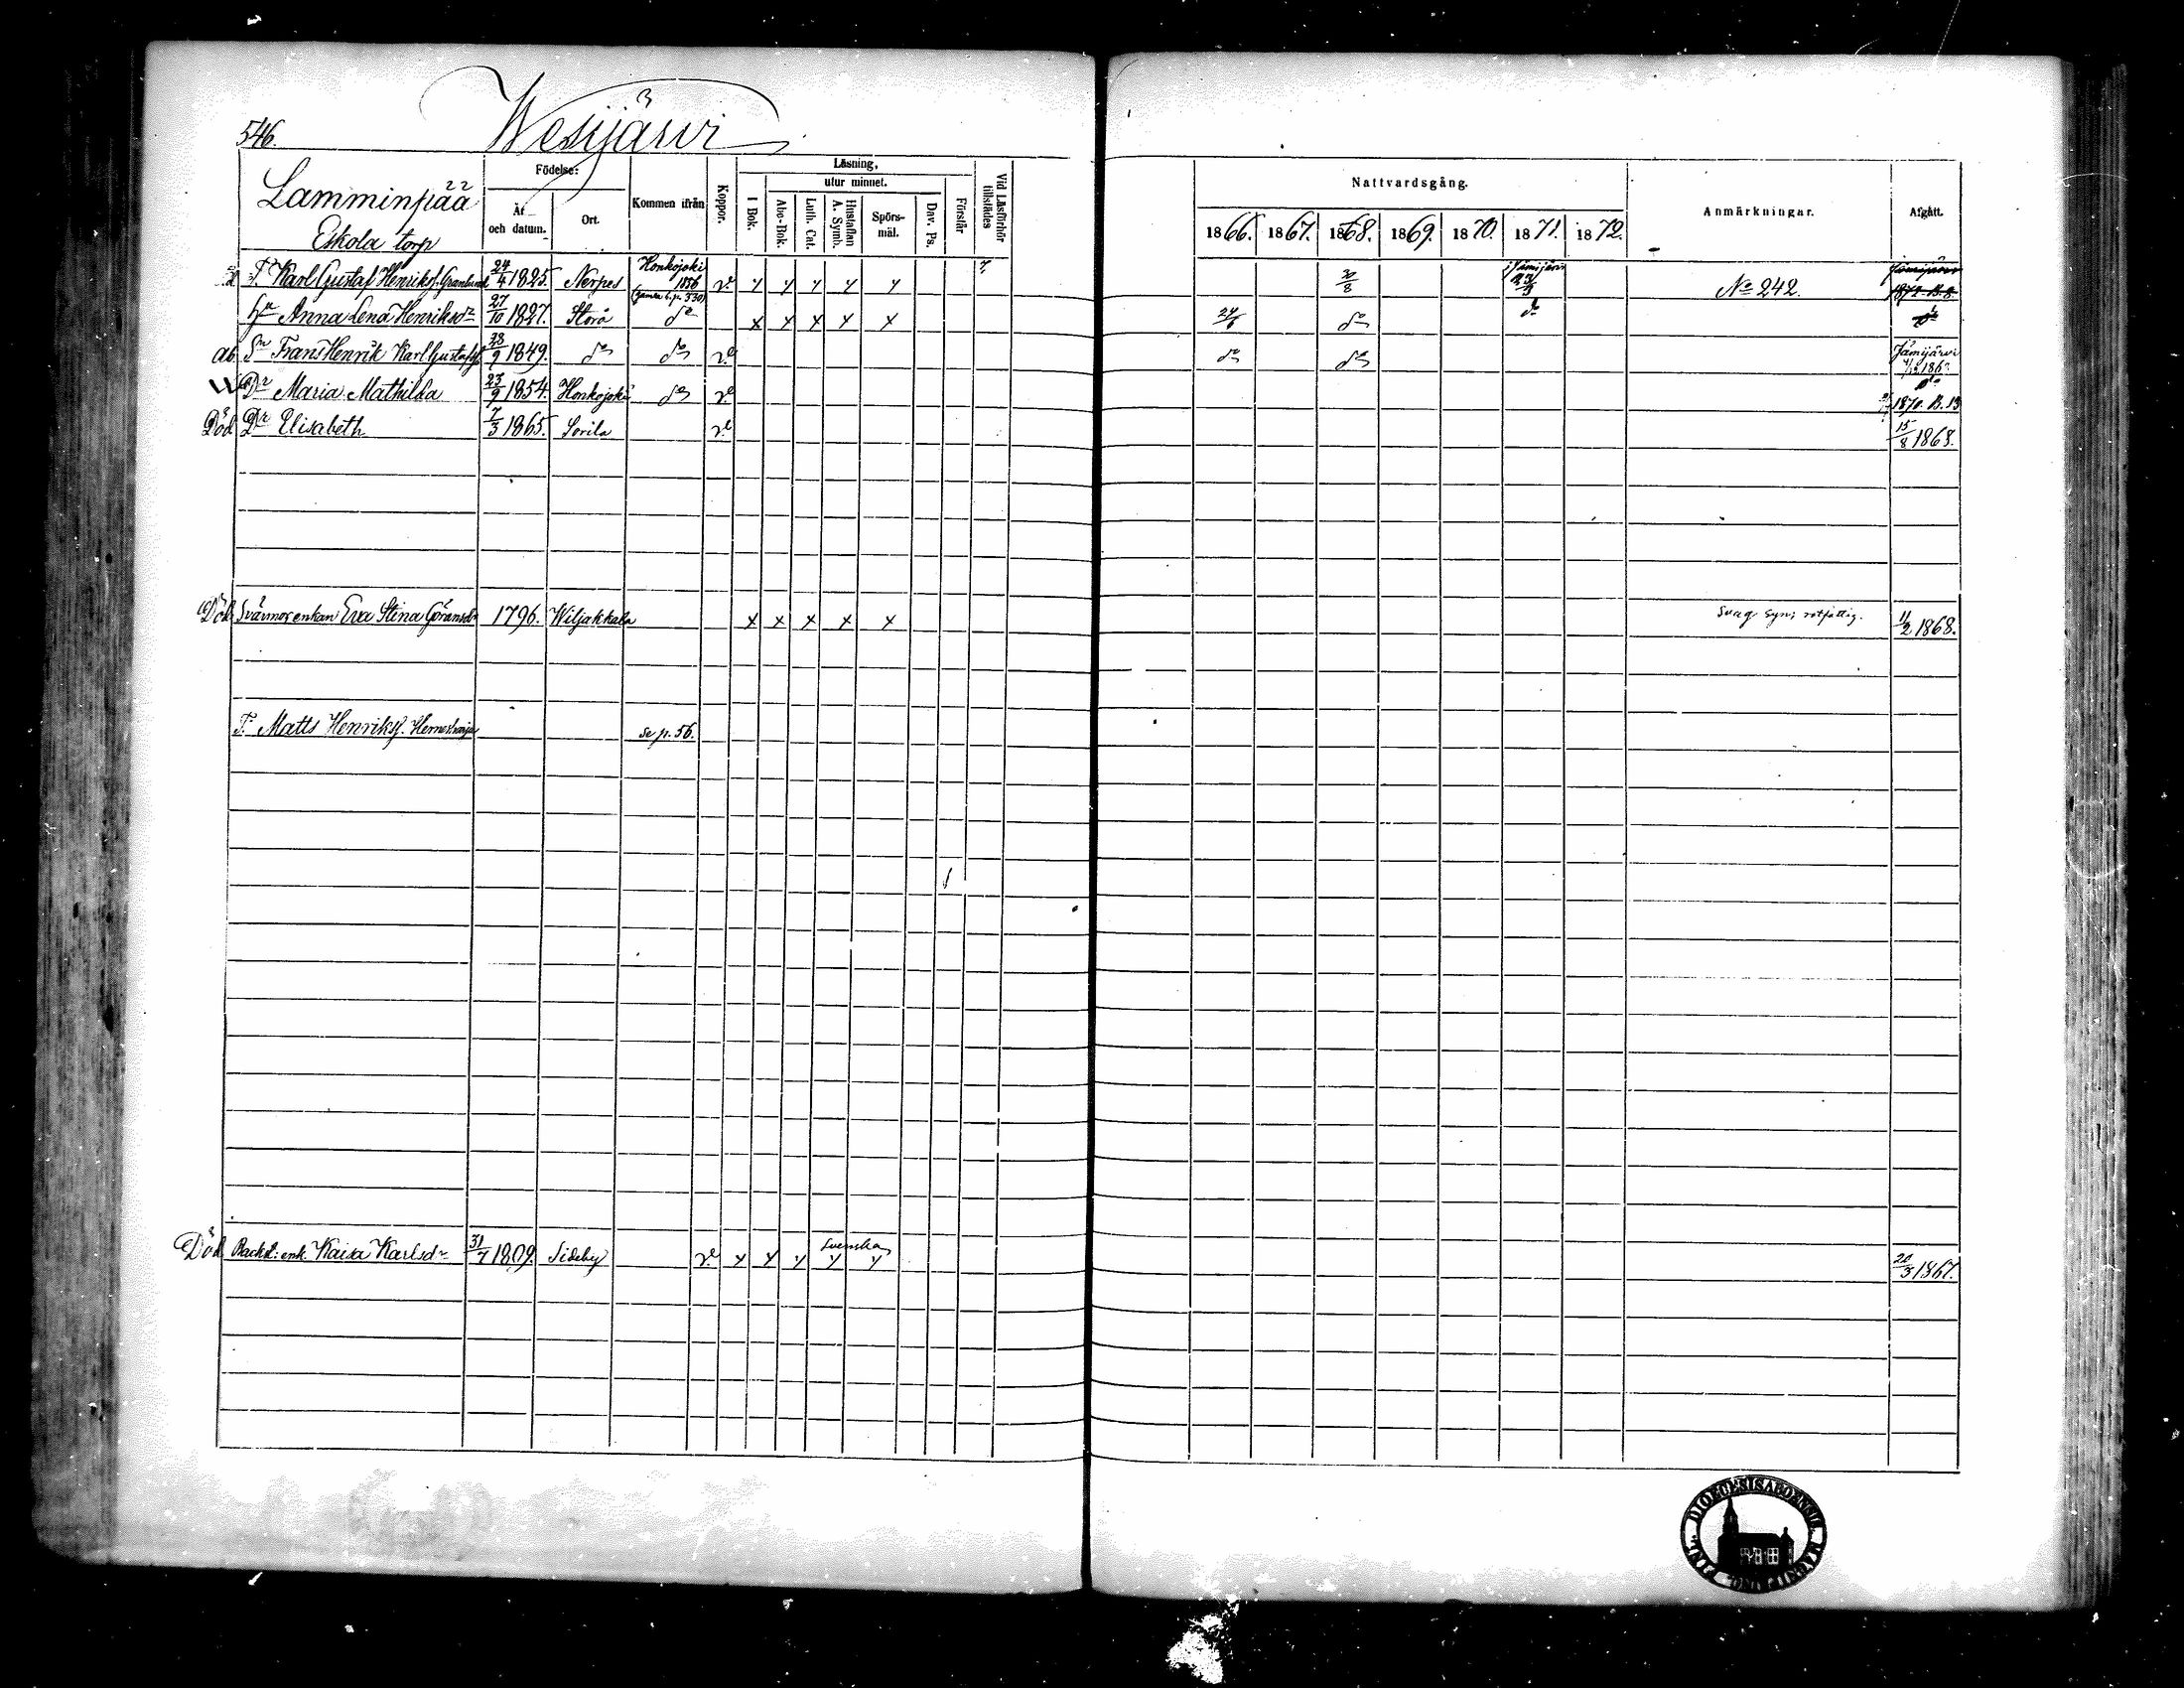 546.
Wesijärvi
Lamminpää
Eskola torp
Födelse:
År och datum.
Ort.
Kommen ifrån
Koppor.
Läsning,
utur minnet.
I Bok.
Abc-Bok.
Luth. Cat.
Hustaflan A. Symb.
Spörs-mål.
Dav. Ps.
Förstår
Vid Läsförhör tillstädes
Nattvardsgång.
1866. 1867. 1868. 1869. 1870. 1871. 1872.
Anmärkningar.
Afgått.
T. Karl Gustaf Henriksf. Granlund 24/4 1825. Nerpes Honkojoki 1856 v. y y y y y 30/8 No 242. Jämijärvi 1872 B. 8.
Hu Anna Lena Henriksdr 27/10 1827. Storå do x x x x x 24/6 do do
ab Sn Frans Henrik Karl Gustafsf. 28/9 1849. do do v. do do Jämijärvi
Dr Maria Mathilda 23/9 1854. Honkojoki do v. 1870. B. 13
Död Dr Elisabeth 7/3 1865. Sorila v. 15/8 1868.
Död Svärmor enkan Eva Stina Göransdr 1796. Wiljakkala x x x x x Svag syn; rotfattig. 11/2 1868.
T. Matts Henriksf. se p. 56.
Död Backst: enk. Kaisa Karlsdr 31/7 1809. Sideby v. y y y y y Svenska 20/3 1867.
DIOECESIS ABOENSIS